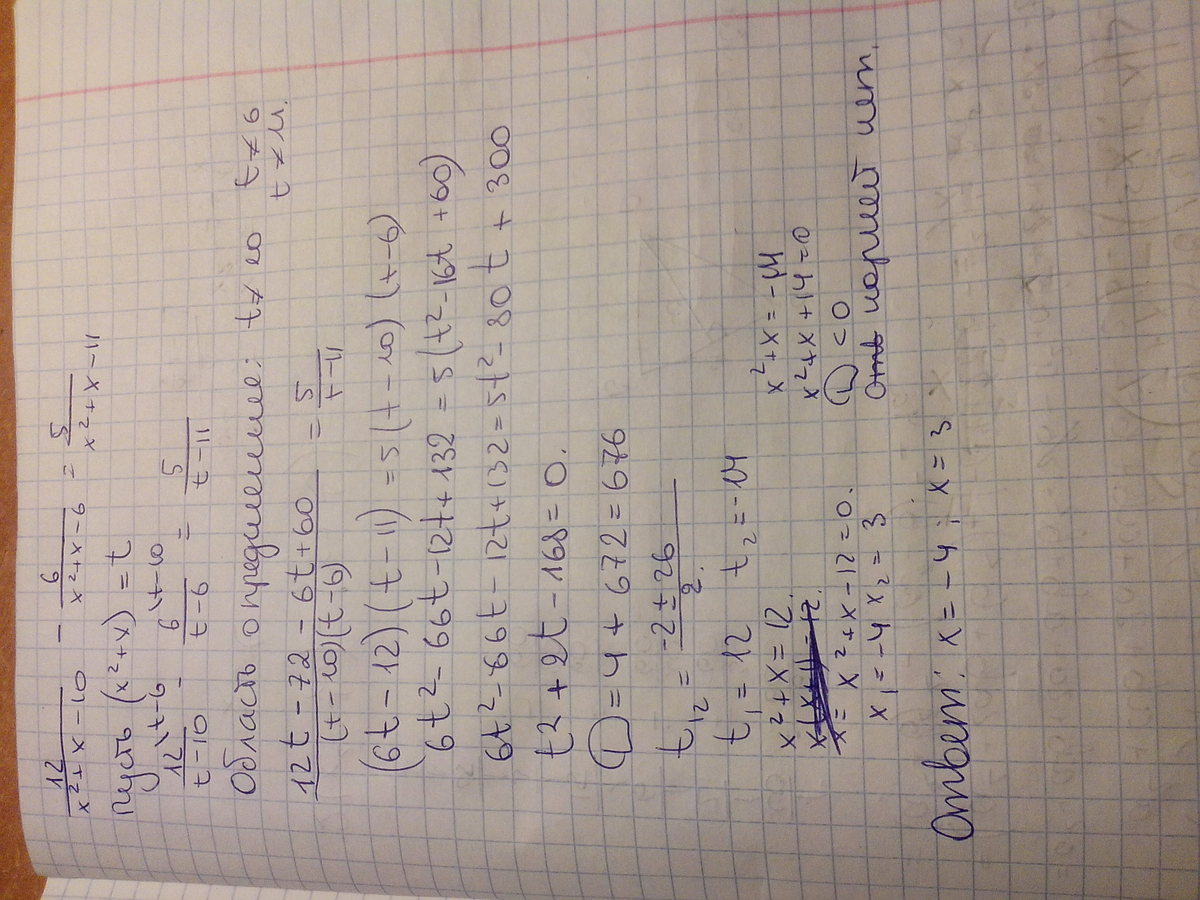 12/(x²+x-10) - 6/(x²+x-6) = 5/(x²+x-11)
Пусть (x²+x) = t
12\t-6/(t-10) - 6\t-10/(t-6) = 5/(t-11)
Область определение: t≠10 t≠6
t≠11.
(12t-72-6t+60)/((t-10)(t-6)) = 5/(t-11)
(6t-12)(t-11)=5(t-10)(t-6)
6t²-66t-12t+132=5(t²-16t+60)
6t²-66t-12t+132=5t²-80t+300
t2+2t-168=0.
D=4+672=676
t₁₂ = (-2±26)/2.
t₁=12 t₂=-14
x²+x=12. x²+x=-14
x²+x+14=0
x= x²+x-12=0. D<0
x₁=-4 x₂=3 корней нет.
Ответ: x=-4; x=3